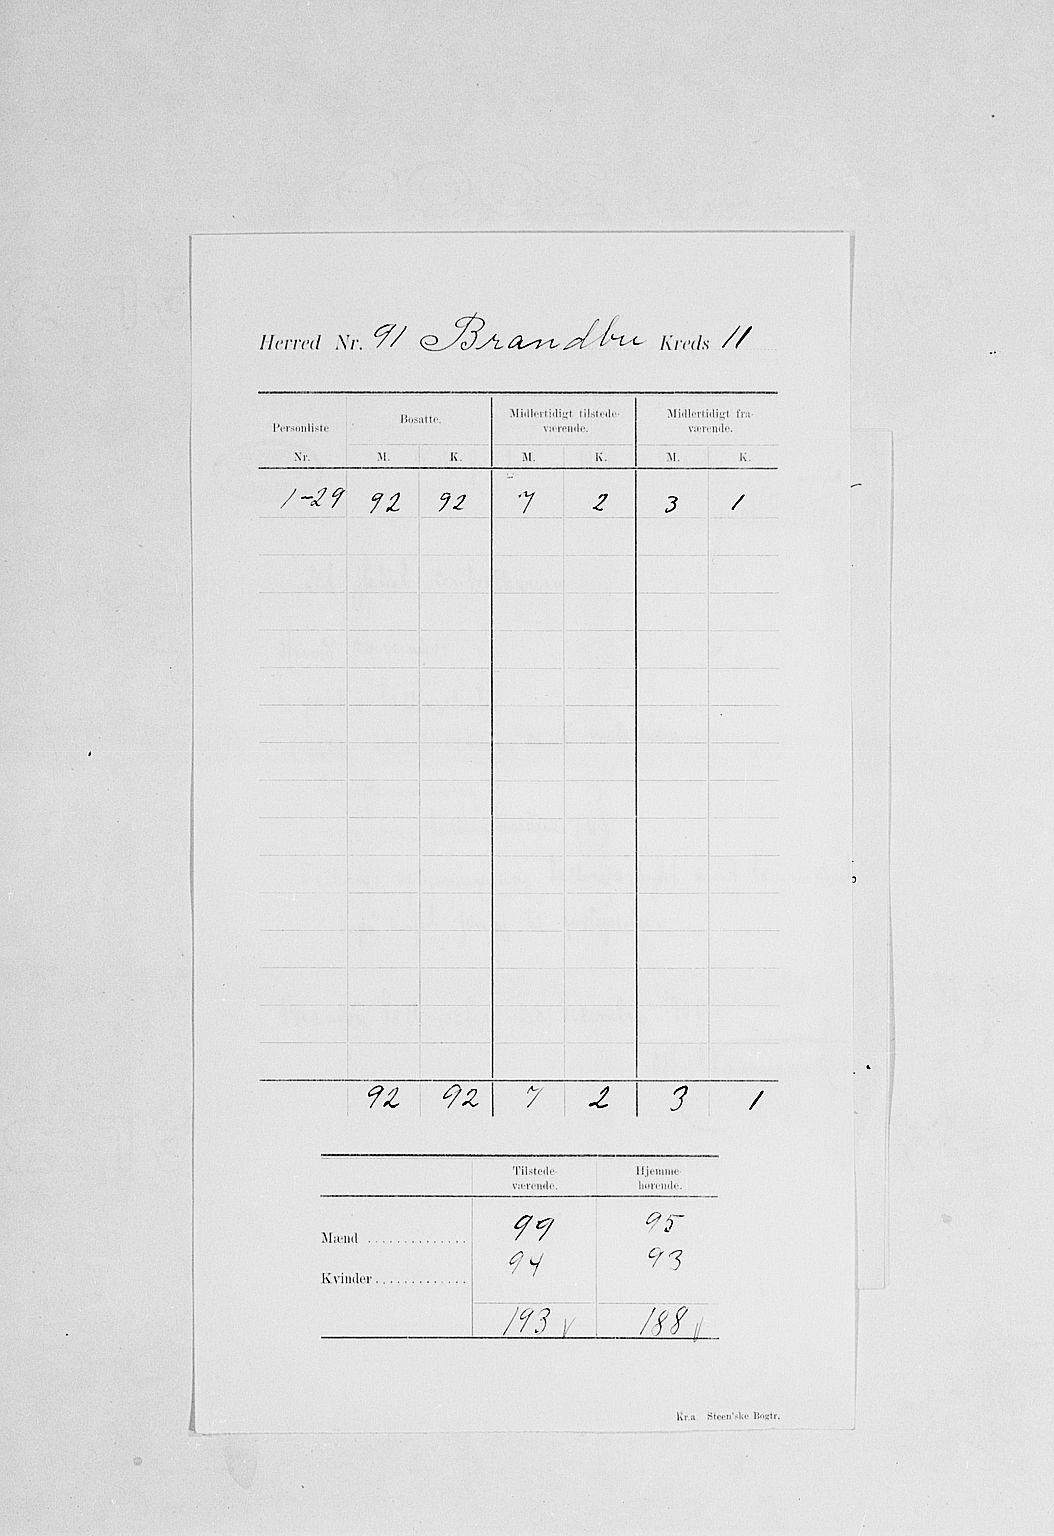 Herred Nr. 91 Brandbu Kreds 11
Personliste Bosatte. Midlertidigt tilstede- Midlertidigt fra-
værende. værende.
Nr. M. K. M. K. M. K.
1-29 92 92 7 2 3 1
92 92 7 2 3 1
Tilstede- Hjemme-
værende. hørende.
Mænd .............. 99 95
Kvinder ............. 94 93
193 188
Kr.a. Steen'ske Bogtr.